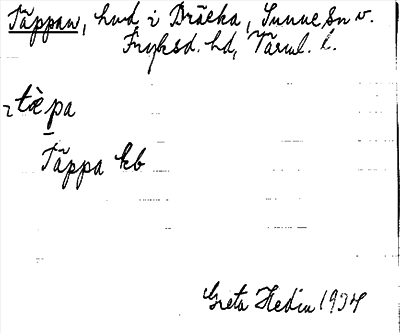 Täppan, hmd i Bräcka, Sunne sn v.
Fryksd. hd, Värml. l.
2 tæ̀pa
Täppa kb
Greta Hedin 1934